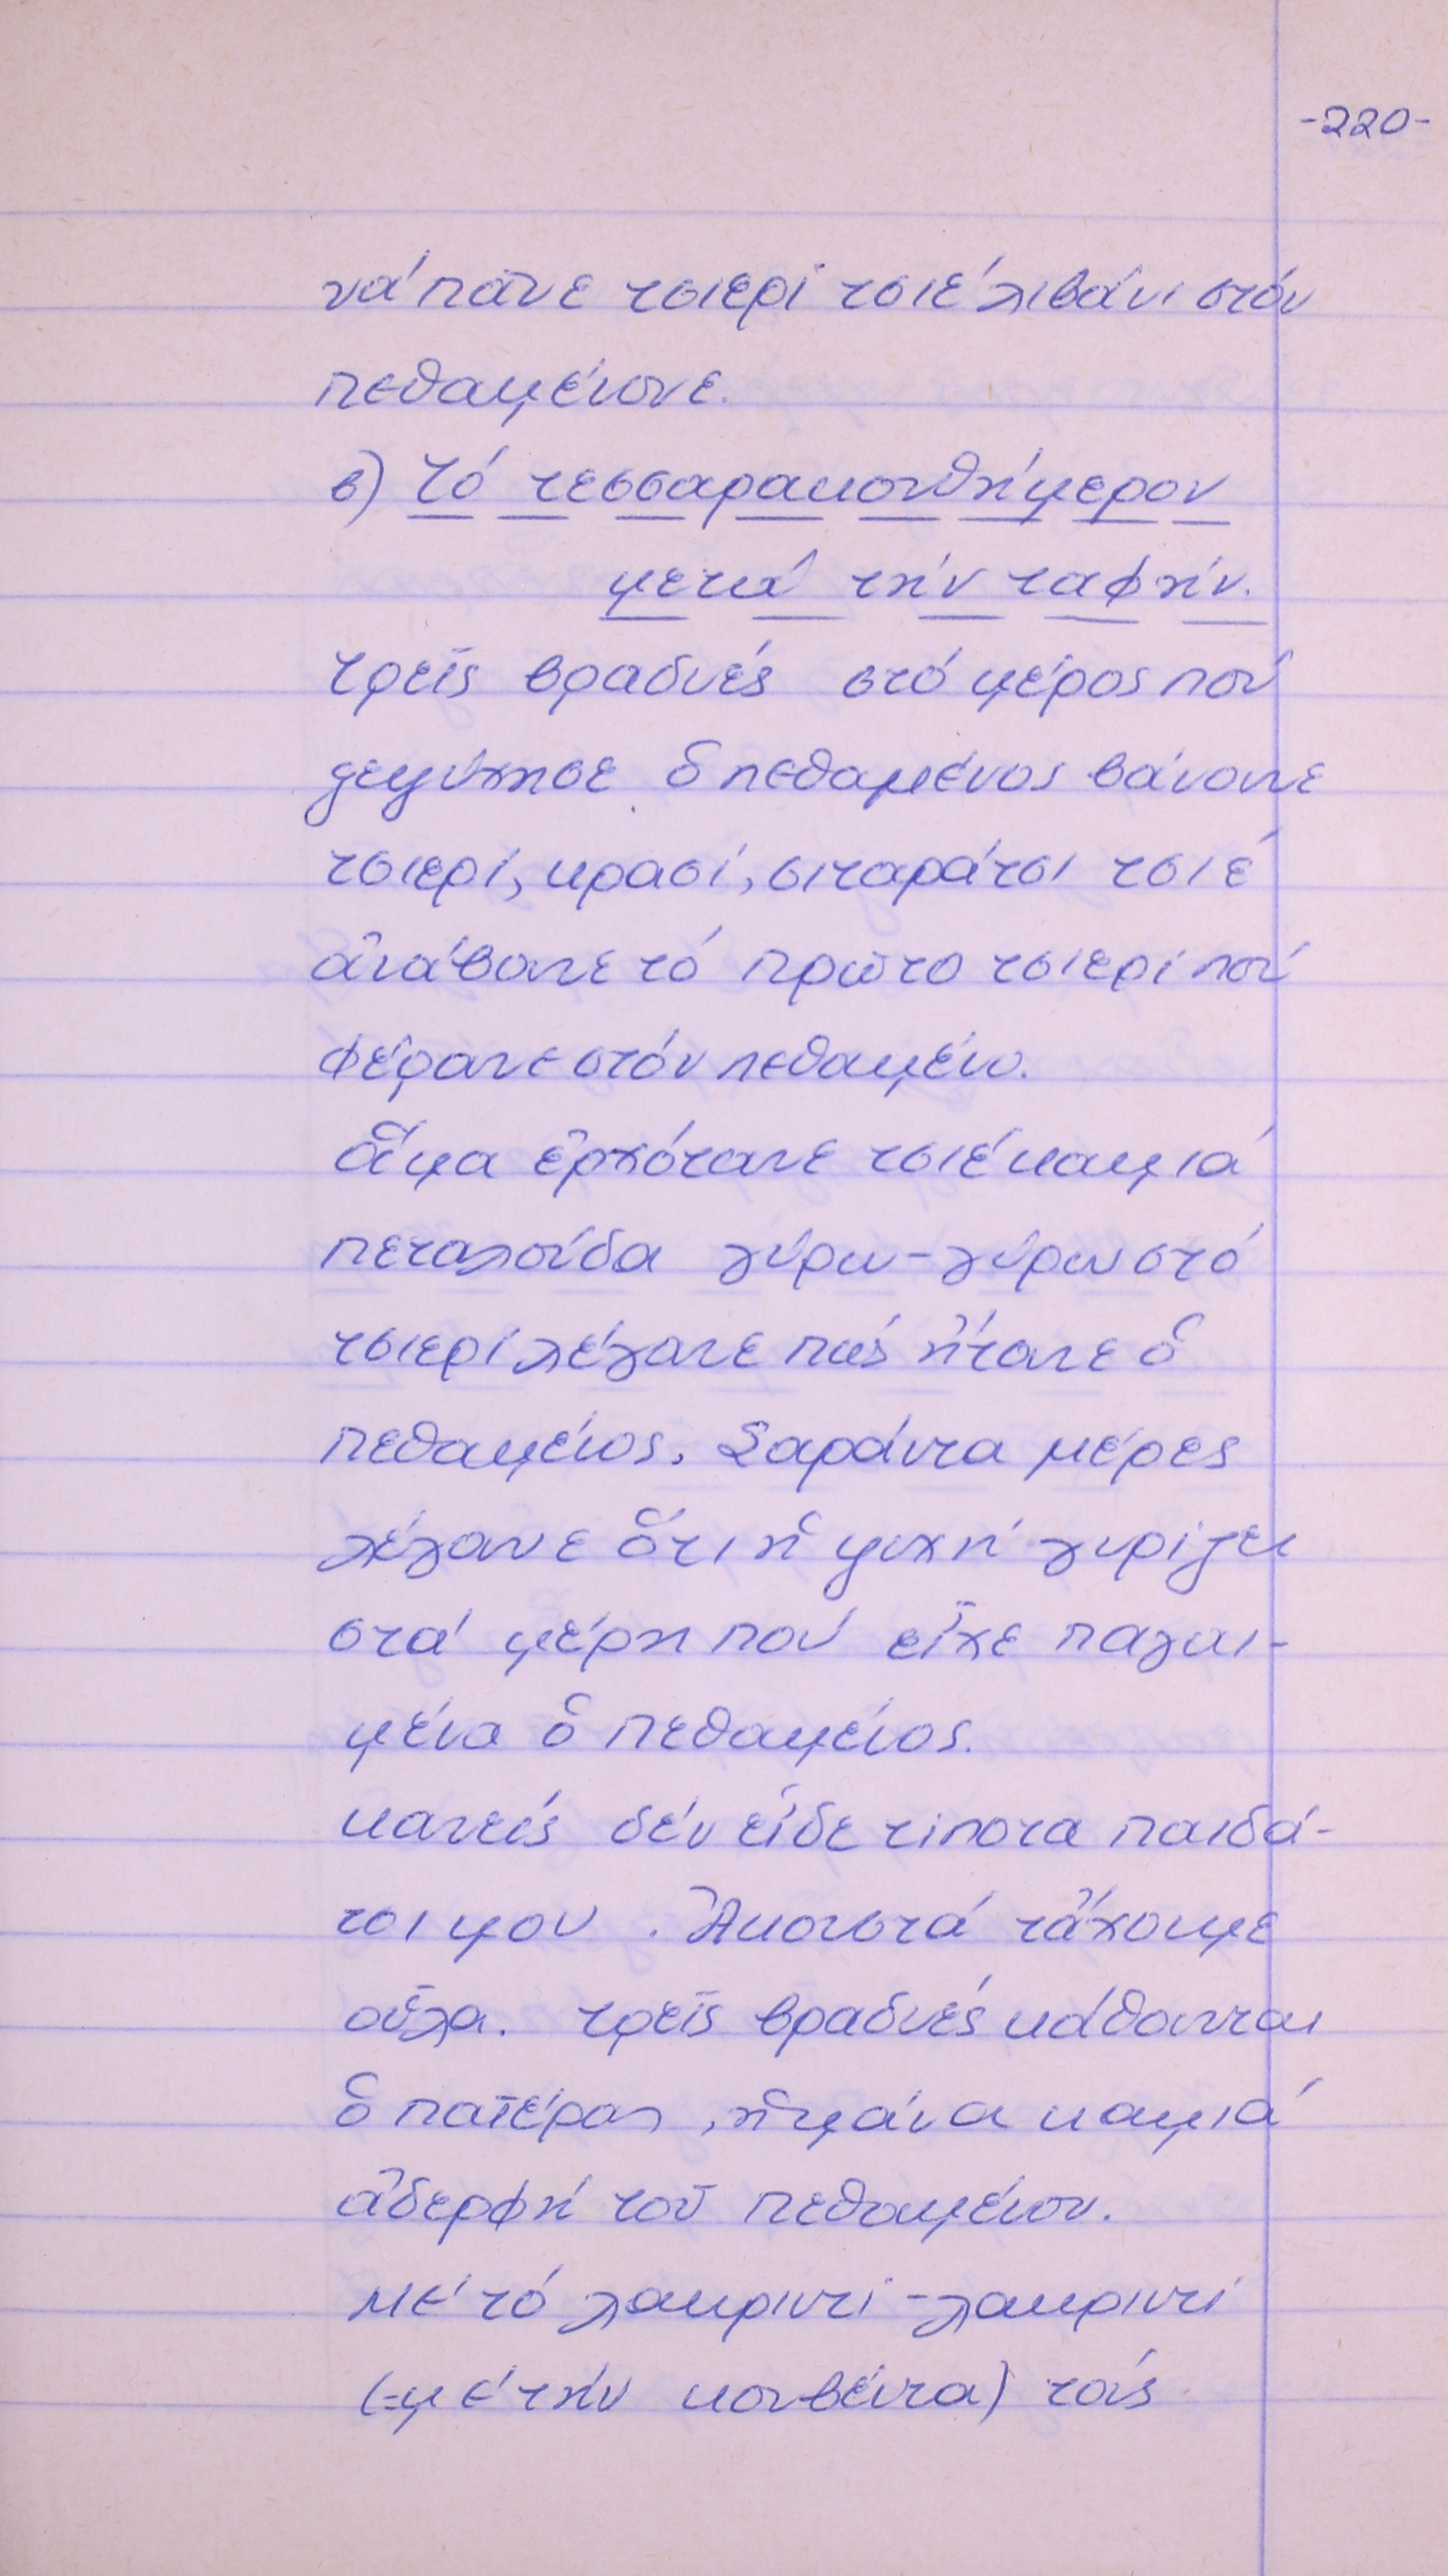 -220-
νά πᾶνε τσιερί τσιέ λιβάνι στόν
πεθαμένονε.
β) Τό τεσσαρακονθήμερον
μετά τήν ταφήν.
Τρεῖς βραδυές στό μέρος πού
ξεψύχησε ὁ πεθαμένος βάνουνε
τσιερί, κρασί, σιταράτσι τσιέ
ἀνάβανε τό πρῶτο τσιερί πού
φέρανε στόν πεθαμένο.
ἅμα ἐρχότανε τσιέ καμιά
πεταλούδα γύρω-γύρω στό
τσιερί λέγανε πώς ἤτανε ὁ
πεθαμένος. Σαράντα μέρες
λέγανε ὅτι ἡ ψυχή γυρίζει
στά μέρη πού εἶχε παγαι-
μένα ὁ πεθαμένος.
κανείς δέν εἶδε τίποτα παιδά-
τσι μου. Ἀκουστά τἄχουμε
οὗλα. Τρεῖς βραδυές κάθουνται
ὁ πατέρας, ἡ μάνα καμιά
ἀδερφή τοῦ πεθαμένου.
Μέ τό λακριντί-λακριντί
(=μέ τήν κουβέντα) τούς